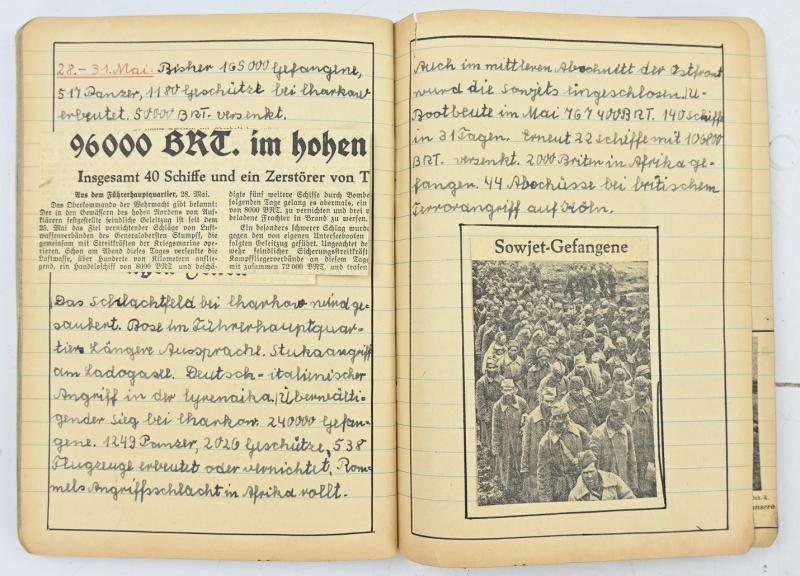 28.-31. Mai: Bisher 165000 Gefangene,
517 Panzer, 1180 Geschütze bei Charkow
erbeutet. 50000 BRT. versenkt.
96000 BRT. im hohen
Insgesamt 40 Schiffe und ein Zerstörer von T
Aus dem Führerhauptquartier, 28. Mai.
Das Oberkommando der Wehrmacht gibt bekannt:
Der in den Gewässern des hohen Nordens von Auf-
klärern festgestellte feindliche Geleitzug ist seit dem
25. Mai das Ziel vernichtender Schläge von Luft-
waffenverbänden des Generalobersten Stumpff, die
gemeinsam mit Streitkräften der Kriegsmarine ope-
rieren. Schon am Abend dieses Tages versenkte die
Luftwaffe, über Hunderte von Kilometern anflie-
gend, ein Handelsschiff von 8000 BRT und beschä-
digte fünf weitere Schiffe durch Bombe
folgenden Tage gelang es abermals, ein
von 8000 BRT. zu vernichten und drei w
beladene Frachter in Brand zu werfen.
Ein besonders schwerer Schlag wurde
gegen den von eigenen Unterseebooten
folgten Geleitzug geführt. Ungeachtet de
wehr feindlicher Sicherungsstreitkräft
Kampffliegerverbände an diesem Tage
mit zusammen 72 000 BRT. und trafen
Das Schlachtfeld bei Charkow wird ge-
säubert. Bose im Führerhauptquar-
tier. Längere Aussprache. Stukaangriff
am Ladogasee. Deutsch-italienischer
Angriff in der Cyrenaika. Überwälti-
gender Sieg bei Charkow. 240000 Gefan-
gene. 1249 Panzer, 2026 Geschütze, 538
Flugzeuge erbeutet oder vernichtet. Rom-
mels Angriffsschlacht in Afrika rollt.
Auch im mittleren Abschnitt der Ostfront
wurd die Sowjets eingeschlosen. U-
Bootbeute im Mai 767400 BRT. 140 Schiffe
in 31 Tagen. Erneut 22 Schiffe mit 106800
BRT. versenkt. 2000 Briten in Afrika ge-
fangen. 44 Abschüsse bei britischem
Terrorangriff auf Köln.
Sowjet-Gefangene
unsere